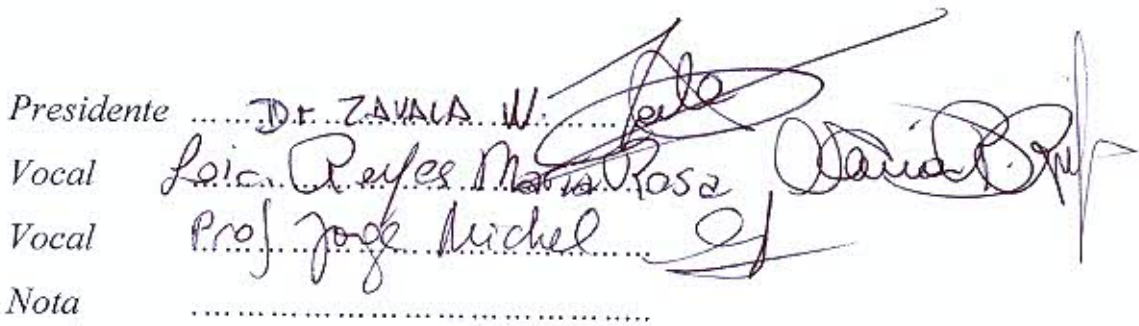 Presidente ....Dr ZAVALA W.....
Vocal Loic. Reyes Maria Rosa Maria R.
Vocal Prof Jorge Michel ....
Nota ........................................